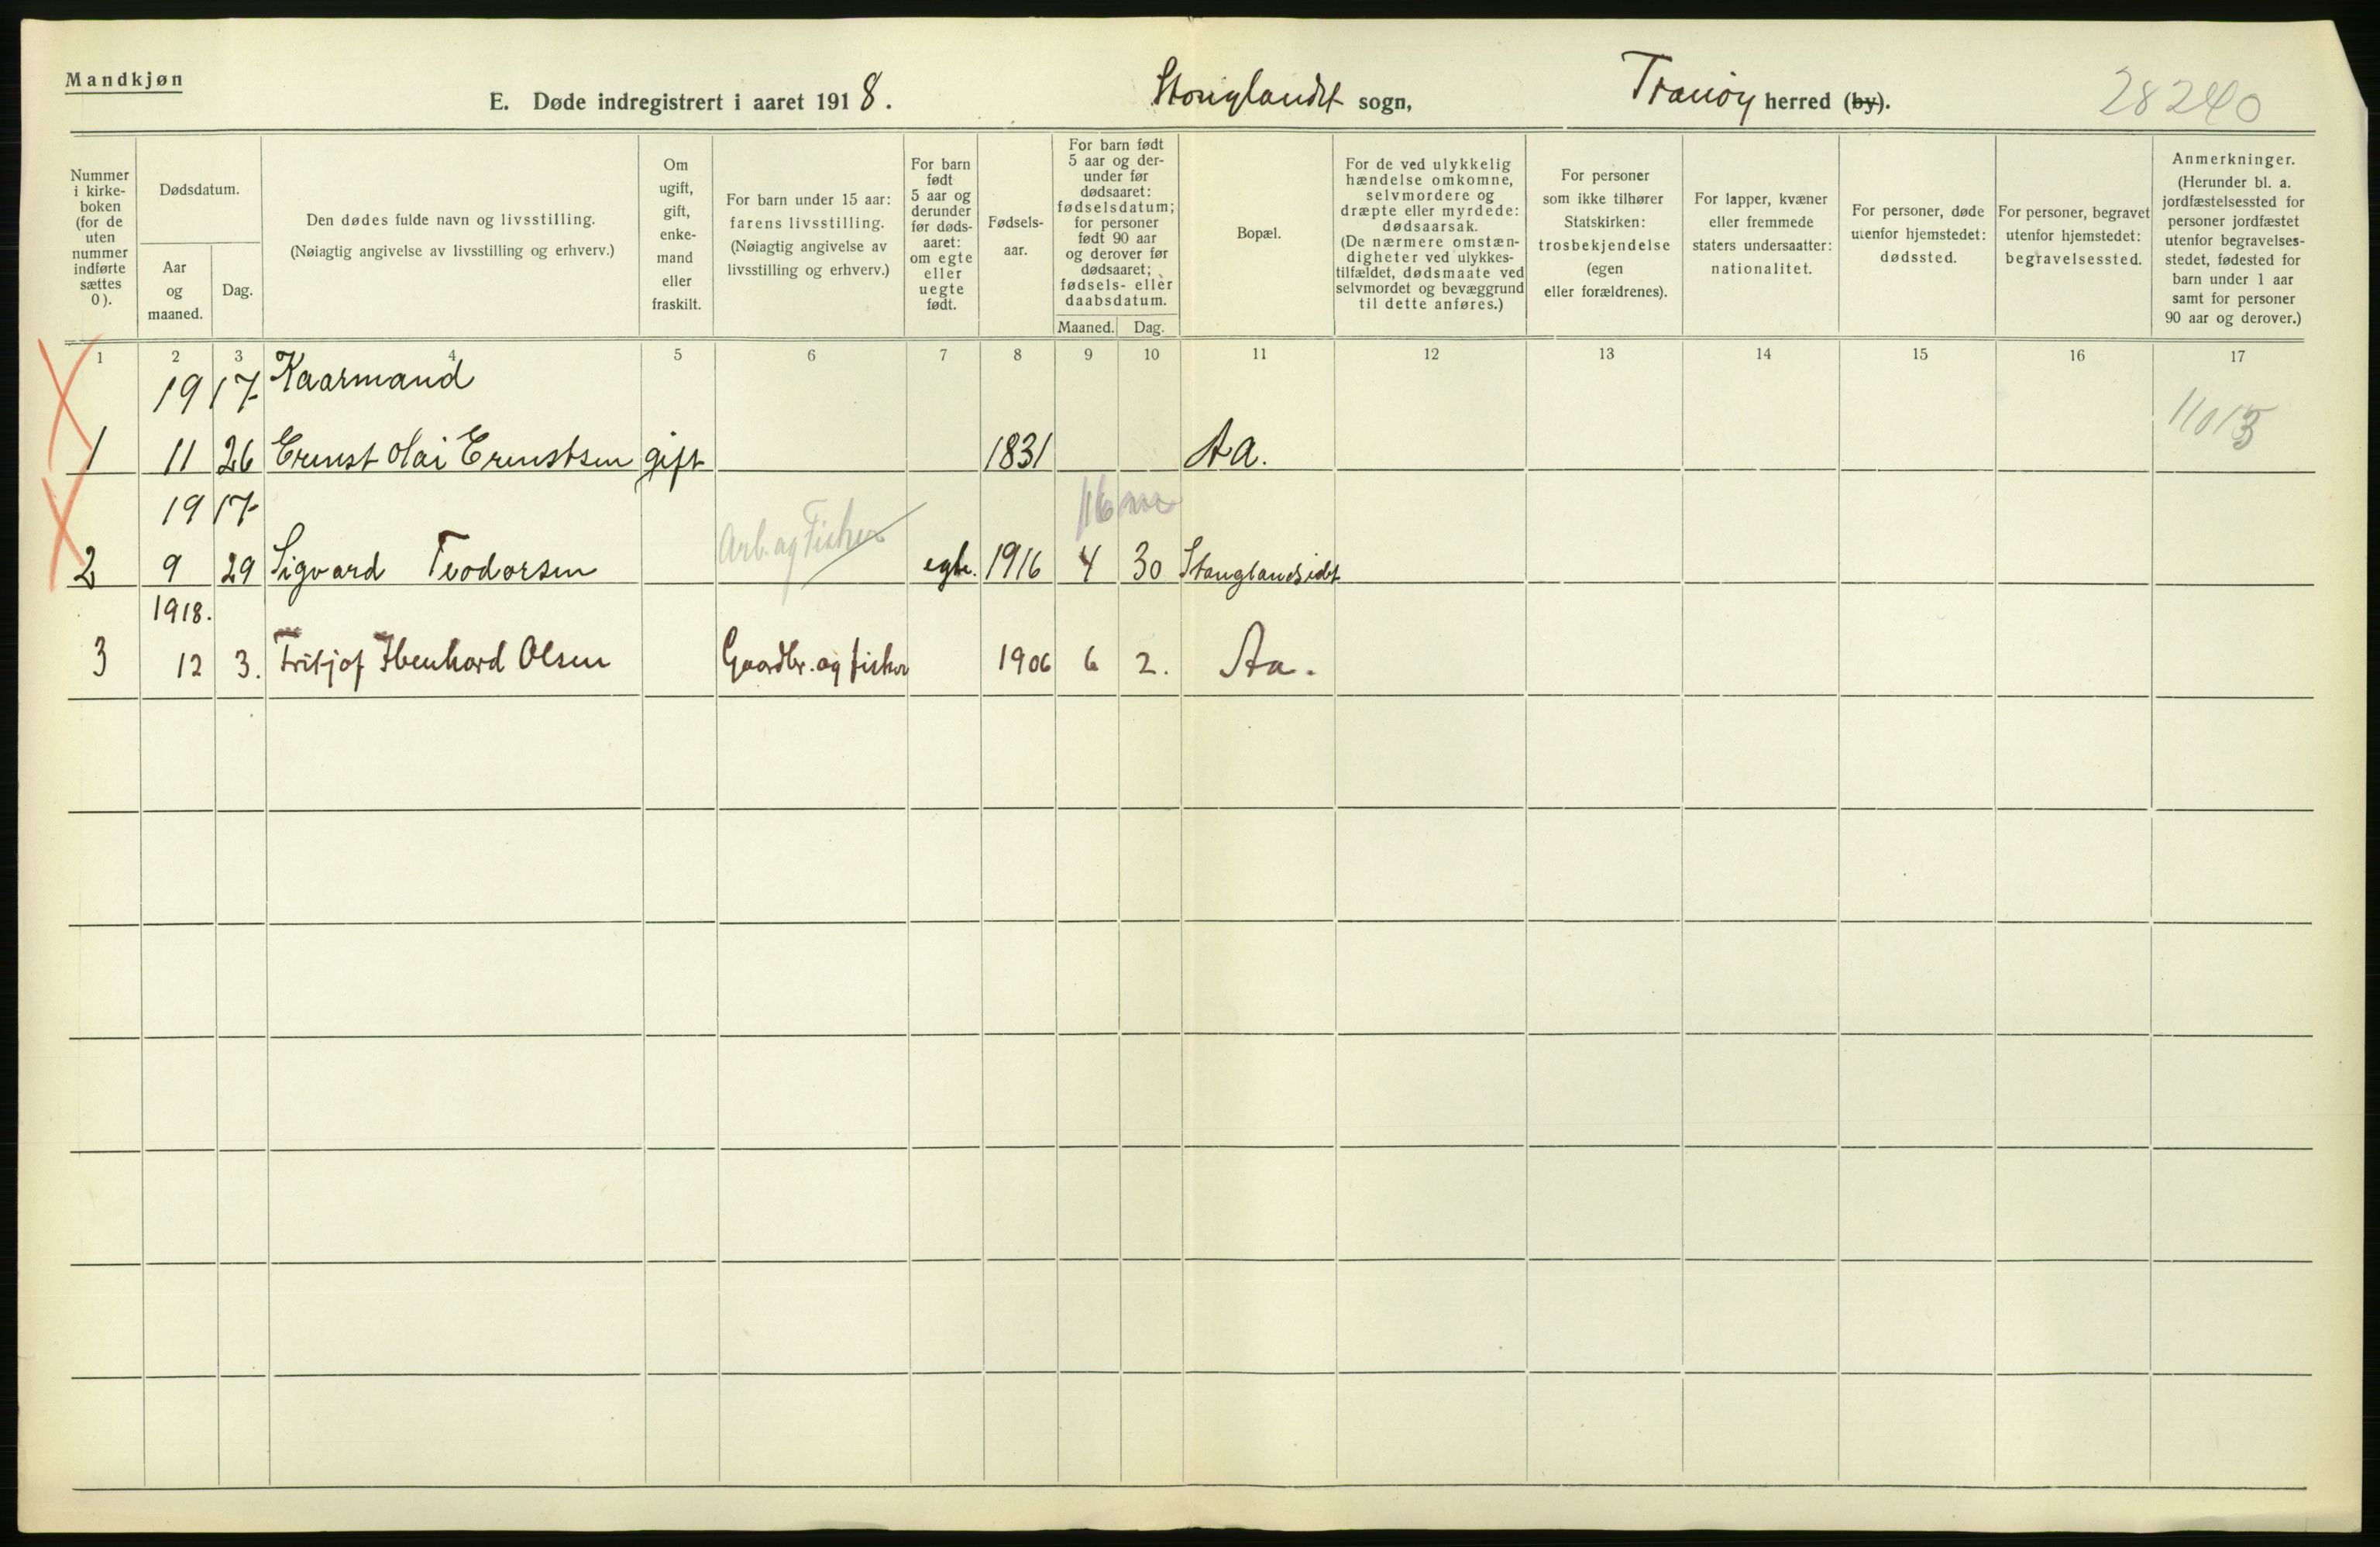 Mandkjøn
E. Døde indregistrert i aaret 1918.
Stonglandet sogn,
Tranöy herred (by).
28240
Nummer
i kirke-
boken
(for de
uten
nummer
indførte
sættes
0).
Dødsdatum.
Aar
og
maaned.
Dag.
Den dødes fulde navn og livsstilling.
(Nøiagtig angivelse av livsstilling og erhverv.)
Om
ugift,
gift,
enke-
mand
eller
fraskilt.
For barn under 15 aar:
farens livsstilling.
(Nøiagtig angivelse av
livsstilling og erhverv.)
For barn
født
5 aar og
derunder
før døds-
aaret:
om egte
eller
uegte
født.
Fødsels-
aar.
For barn født
5 aar og der-
under før
dødsaaret:
fødselsdatum;
for personer
født 90 aar
og derover før
dødsaaret;
fødsels- eller
daabsdatum.
Maaned.
Dag.
Bopæl.
For de ved ulykkelig
hændelse omkomne,
selvmordere og
dræpte eller myrdede:
dødsaarsak.
(De nærmere omstæn-
digheter ved ulykkes-
tilfældet, dødsmaate ved
selvmordet og bevæggrund
til dette anføres.)
For personer
som ikke tilhører
Statskirken:
trosbekjendelse
(egen
eller forældrenes).
For lapper, kvæner
eller fremmede
staters undersaatter:
nationalitet.
For personer, døde
utenfor hjemstedet:
dødssted.
For personer, begravet
utenfor hjemstedet:
begravelsessted.
Anmerkninger.
(Herunder bl. a.
jordfæstelsessted for
personer jordfæstet
utenfor begravelses-
stedet, fødested for
barn under 1 aar
samt for personer
90 aar og derover.)
1 2 3 4 5 6 7 8 9 10 11 12 13 14 15 16 17
19 17 Kaarmand
1 11 26 Ernst Olai Ernstsen gift 1831 Aa.
19 17
2 9 29 Sigvard Teodorsen Arb. og Fisker egte. 1916 4 30 Stonglandseidet
1918.
3 12 3. Fritjof Ibenhard Olsen Gaardbr. og fisker 1906 6 2. Aa.